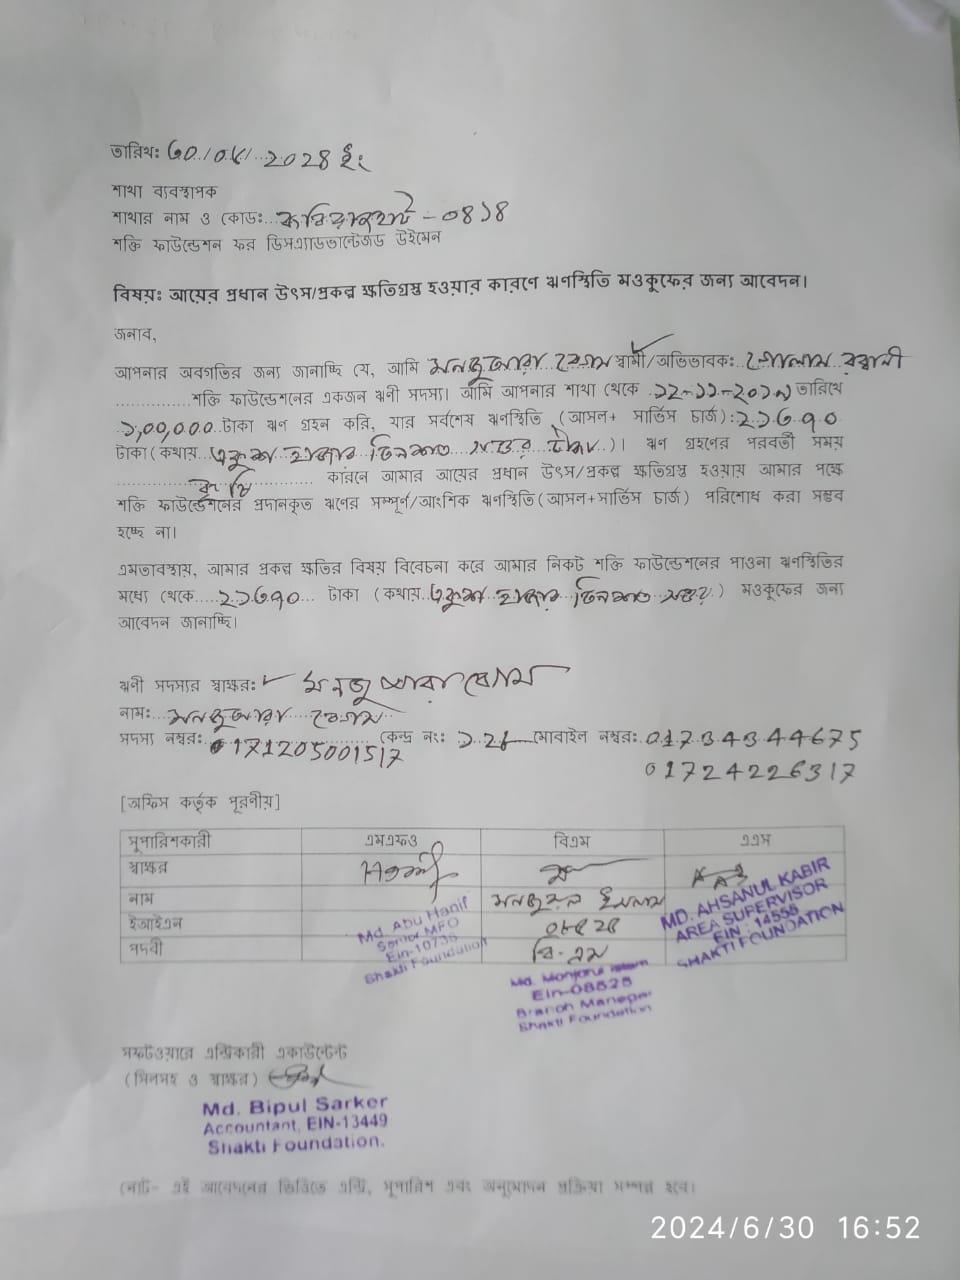 তারিখঃ ৩০/০৬/২০২৪ ইং
শাখা ব্যবস্থাপক
শাখার নাম ও কোডঃ... কবিরাজহাট - ০৪১৪
শক্তি ফাউন্ডেশন ফর ডিসএ্যাডভান্টেজড উইমেন
বিষয়ঃ আয়ের প্রধান উৎস/প্রকল্প ক্ষতিগ্রস্ত হওয়ার কারণে ঋণস্থিতি মওকুফের জন্য আবেদন।
জনাব,
আপনার অবগতির জন্য জানাচ্ছি যে, আমি মনজুআরা বেগম স্বামী/অভিভাবকঃ গোলাম রব্বানী
..............শক্তি ফাউন্ডেশনের একজন ঋণী সদস্য। আমি আপনার শাখা থেকে ১২-১১-২০১৭ তারিখে
১,00,000 টাকা ঋণ গ্রহন করি, যার সর্বশেষ ঋণস্থিতি (আসল+ সার্ভিস চার্জ):২১৩৭০
টাকা(কথায়...একুশ হাজার তিনশত সত্তর টাকা..)। ঋণ গ্রহণের পরবর্তী সময়
.............. কৃষি .............. কারনে আমার আয়ের প্রধান উৎস/প্রকল্প ক্ষতিগ্রস্ত হওয়ায় আমার পক্ষে
শক্তি ফাউন্ডেশনের প্রদানকৃত ঋণের সম্পূর্ণ/আংশিক ঋণস্থিতি(আসল+সার্ভিস চার্জ) পরিশোধ করা সম্ভব
হচ্ছে না।
এমতাবস্থায়, আমার প্রকল্প ক্ষতির বিষয় বিবেচনা করে আমার নিকট শক্তি ফাউন্ডেশনের পাওনা ঋণস্থিতির
মধ্যে থেকে.....২১৩৭০... টাকা (কথায়..একুশ হাজার তিনশত সত্তর.) মওকুফের জন্য
আবেদন জানাচ্ছি।
ঋণী সদস্যের স্বাক্ষরঃ মনজু আরা বেগম
নামঃ...মনজুআরা....বেগম
সদস্য নম্বরঃ 0171205001517 কেন্দ্র নংঃ ১২৮ মোবাইল নম্বরঃ 01734344675
01724226317
[অফিস কর্তৃক পূরণীয়]
সুপারিশকারী এমএফও বিএম এএস
স্বাক্ষর
নাম মনজুরুল ইসলাম
ইআইএন ০৮৫২৫
পদবী বি-এম
Md. Abu Hanif
Senior MFO
Ein-10736
Shakti Foundation
Md. Monjorul Islam
Ein-08525
Branch Maneger
Shakti Foundation
MD. AHSANUL KABIR
AREA SUPERVISOR
EIN : 14555
SHAKTI FOUNDATION
সফটওয়ারে এন্ট্রিকারী একাউন্টেন্ট
(সিলসহ ও স্বাক্ষর)
Md. Bipul Sarker
Accountant, EIN-13449
Shakti Foundation.
(নোট- এই আবেদনের ভিত্তিতে এন্ট্রি, সুপারিশ এবং অনুমোদন প্রক্রিয়া সম্পন্ন হবে।
2024/6/30 16:52